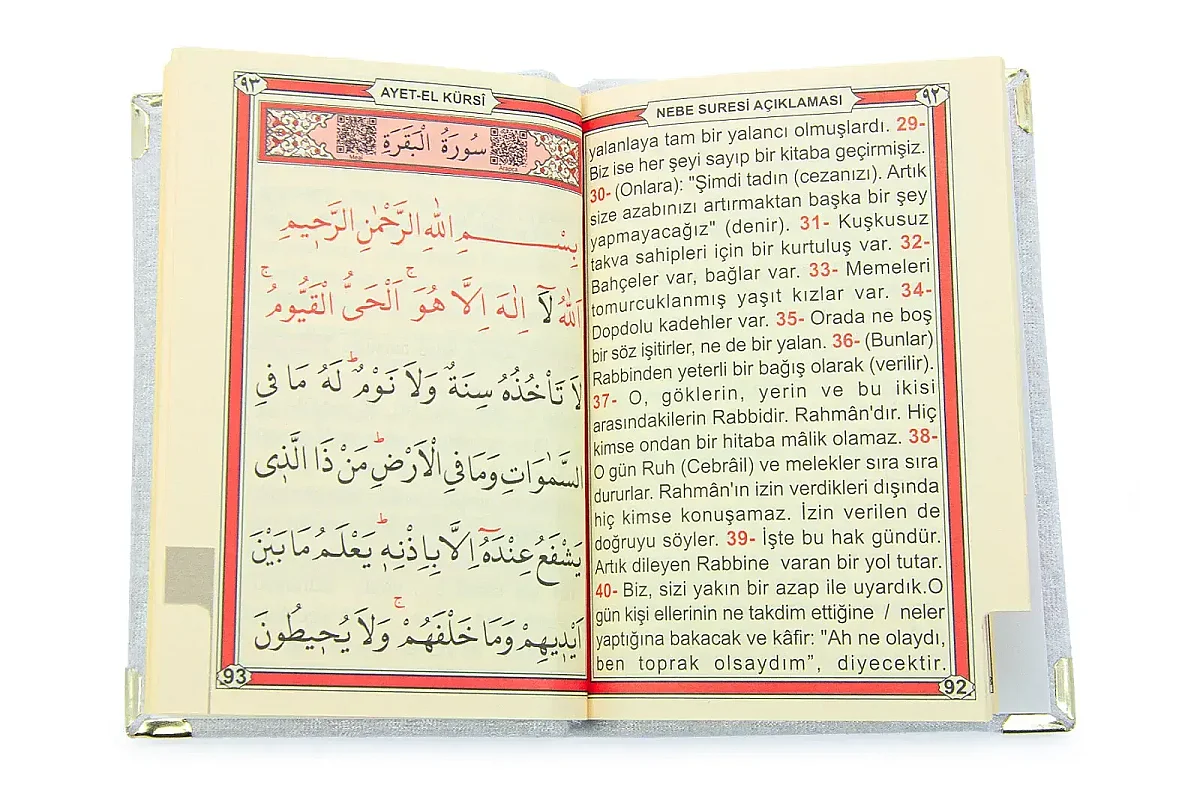 ٩٢
NEBE SURESİ AÇIKLAMASI
yalanlaya tam bir yalancı olmuşlardı. 29-
Biz ise her şeyi sayıp bir kitaba geçirmişiz.
30- (Onlara): "Şimdi tadın (cezanızı). Artık
size azabınızı artırmaktan başka bir şey
yapmayacağız" (denir). 31- Kuşkusuz
takva sahipleri için bir kurtuluş var. 32-
Bahçeler var, bağlar var. 33- Memeleri
tomurcuklanmış yaşıt kızlar var. 34-
Dopdolu kadehler var. 35- Orada ne boş
bir söz işitirler, ne de bir yalan. 36- (Bunlar)
Rabbinden yeterli bir bağış olarak (verilir).
37- O, göklerin, yerin ve bu ikisi
arasındakilerin Rabbidir. Rahmân'dır. Hiç
kimse ondan bir hitaba mâlik olamaz. 38-
O gün Ruh (Cebrâil) ve melekler sıra sıra
dururlar. Rahmân'ın izin verdikleri dışında
hiç kimse konuşamaz. İzin verilen de
doğruyu söyler. 39- İşte bu hak gündür.
Artık dileyen Rabbine varan bir yol tutar.
40- Biz, sizi yakın bir azap ile uyardık.O
gün kişi ellerinin ne takdim ettiğine / neler
yaptığına bakacak ve kâfir: "Ah ne olaydı,
ben toprak olsaydım”, diyecektir.
92
٩٣
AYET-EL KÜRSÎ
سُورَةُ الْبَقَرَةِ
Meal
Arapça
بِسْــــــــمِ اللهِ الرَّحْمٰنِ الرَّح۪يمِ
اَللهُ لَٓا اِلٰهَ اِلَّا هُوَۚ اَلْحَىُّ الْقَيُّومُۚ
لَا تَأْخُذُهُ سِنَةٌ وَلَا نَوْمٌۜ لَهُ مَا فِى
السَّمٰوَاتِ وَمَا فِى الْاَرْضِۜ مَنْ ذَا الَّذ۪ى
يَشْفَعُ عِنْدَهُٓ اِلَّا بِاِذْنِه۪ۜ يَعْلَمُ مَا بَيْنَ
اَيْد۪يهِمْ وَمَا خَلْفَهُمْۚ وَلَا يُح۪يطُونَ
93